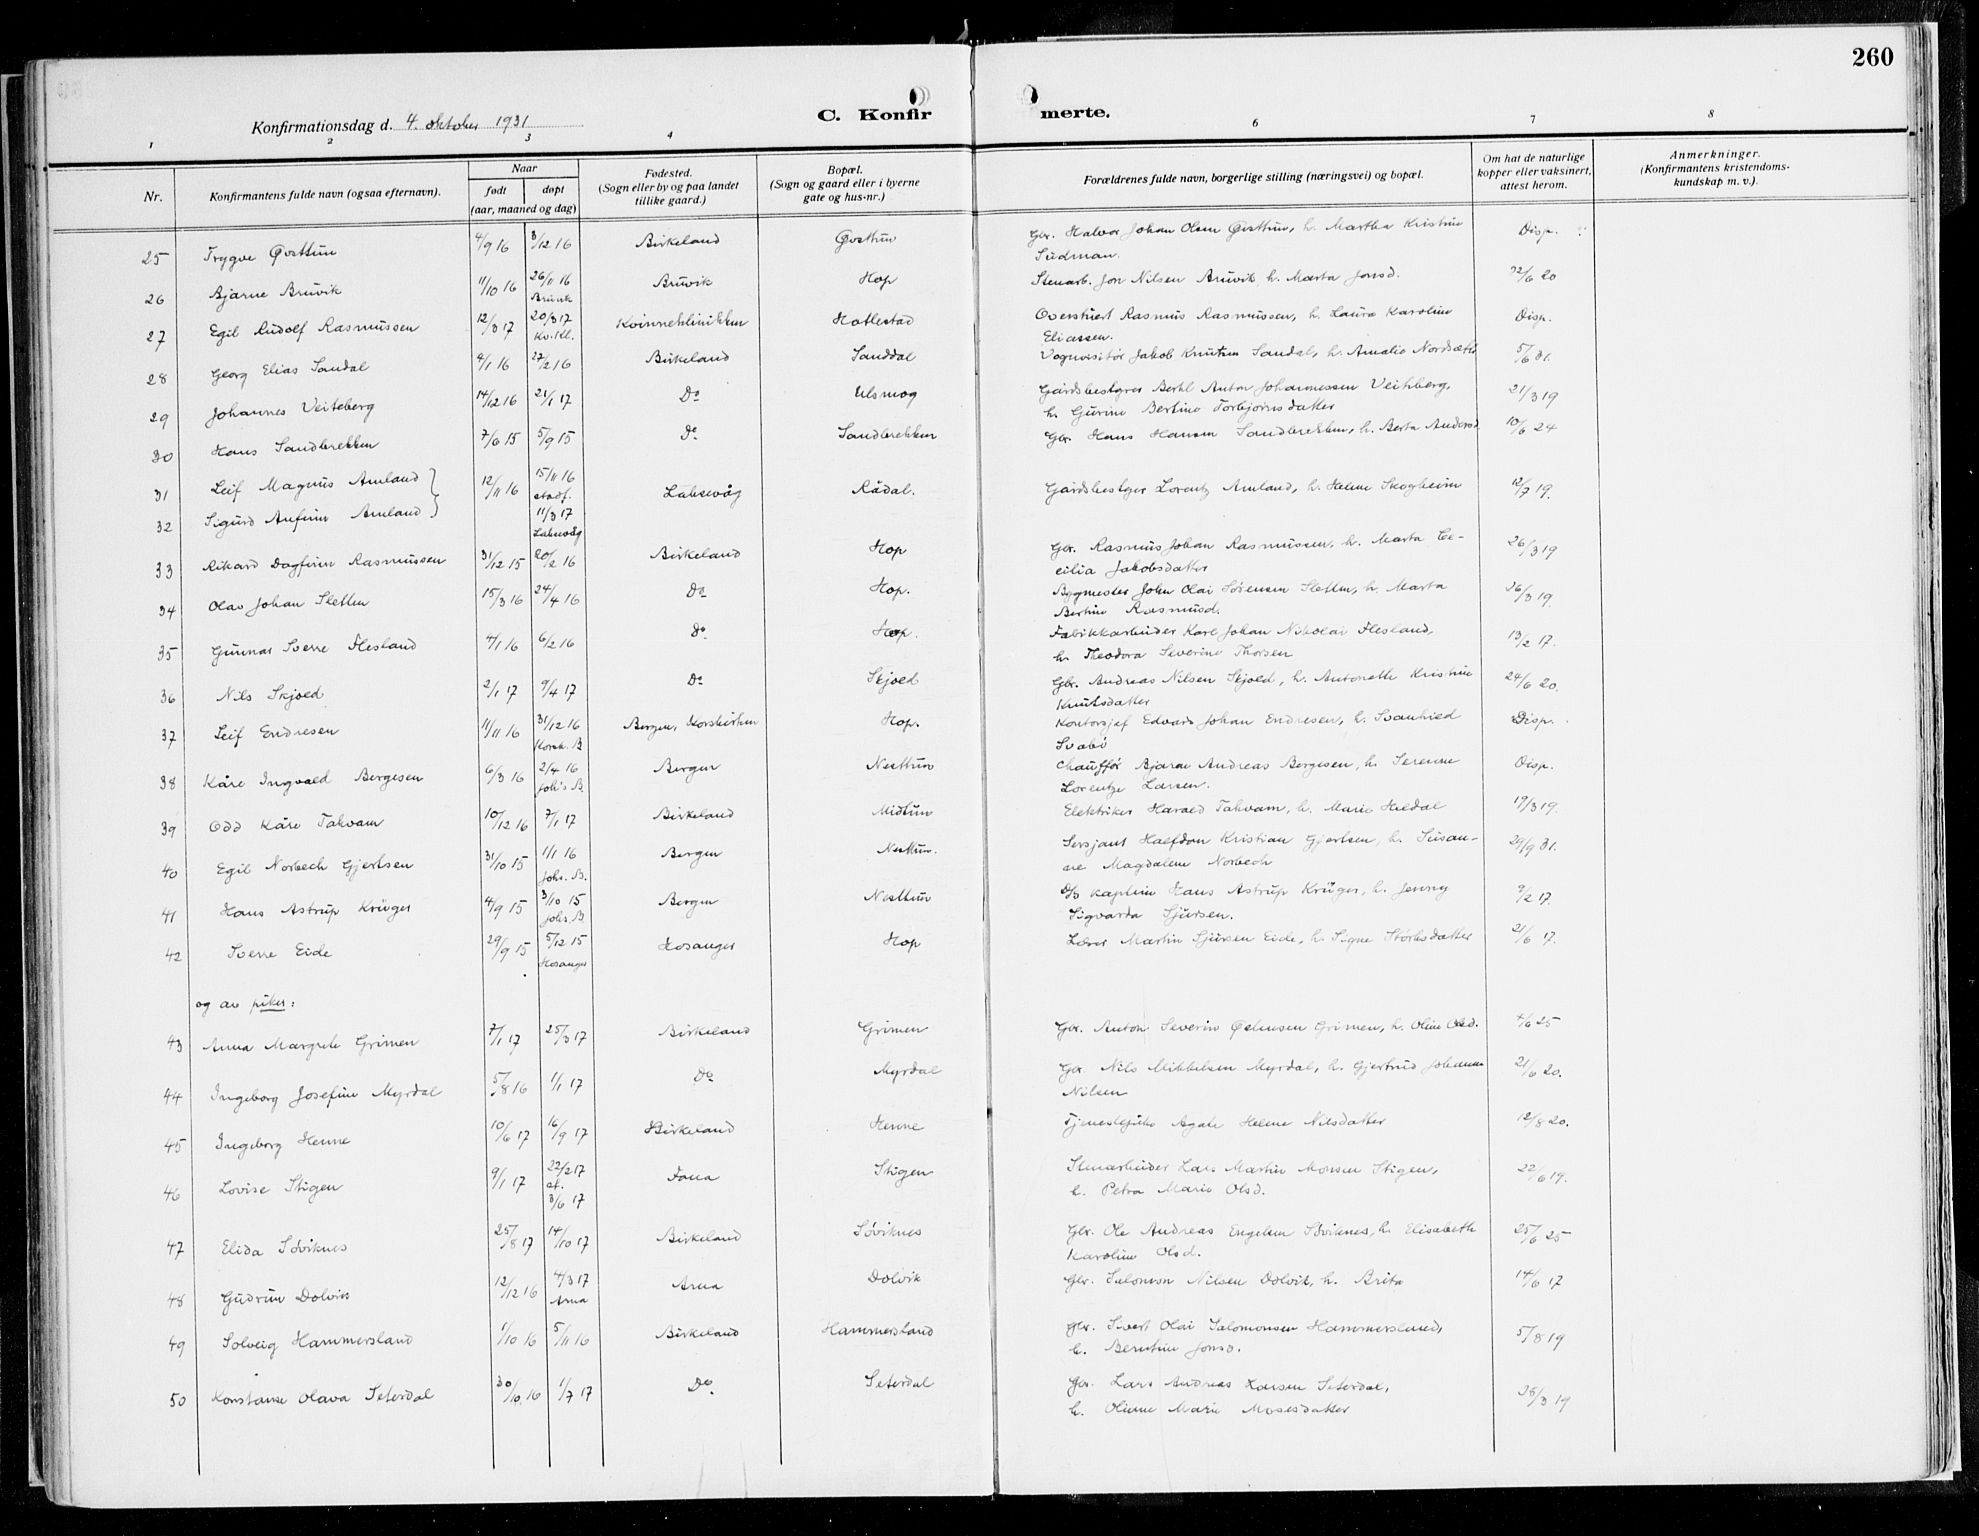 260
Konfirmationsdag d. 4. oktober 1931
C. Konfir
merte.
1 2 3 4 6 7 8
Nr.
Konfirmantens fulde navn (ogsaa efternavn).
Naar
født døpt
(aar, maaned og dag)
Fødested.
(Sogn eller by og paa landet
tillike gaard.)
Bopæl.
(Sogn og gaard eller i byerne
gate og hus-nr.)
Forældrenes fulde navn, borgerlige stilling (næringsvei) og bopæl.
Om hat de naturlige
kopper eller vaksinert,
attest herom.
Anmerkninger.
(Konfirmantens kristendoms-
kundskap m. v.).
25 Trygve Øvsttun 4/9 16 3/12 16 Birkeland Øvsttun Gbr. Halvor Johan Olsen Øvsttun, h. Martha Kristine Disp.
Sudman.
26 Bjarne Bruvik 11/10 16 26/11 16 Bruvik Hop Stenarb. Jon Nilsen Bruvik, h. Marta Jonsd. 22/6 20
Bruvik
27 Egil Rudolf Rasmussen 12/3 17 20/3 17 Kvinneklinikken Hatlestad Overstuert Rasmus Rasmussen, h. Laura Karoline Disp.
Kv. Kl. Eliassen.
28 Georg Elias Sandal 4/1 16 27/2 16 Birkeland Sanddal Vognvisitør Jakob Knutsen Sandal, h. Amalie 5/6 31.
29 Johannes Veiteberg 14/12 16 21/1 17 Do Ulsmog Gårdsbestyrer Bertel Anton Johannessen Veiteberg, 21/3 19
h. Gurine Bertine Torbjørnsdatter
30 Hans Sandbrekken 7/6 15 5/9 15 Do Sandbrekken Gbr. Hans Hansen Sandbrekken, h. Berta Andersd. 10/6 24
31 Leif Magnus Amland 12/11 16 15/11 16 Laksevåg Rådal. Gårdsbestyrer Lorentz Amland, h. Helene Skogheim 12/7 19.
stadf.
32 Sigurd Anfinn Amland 11/3 17
Laksevåg
33 Rikard Dagfinn Rasmussen 31/12 15 20/2 16 Birkeland Hop Gbr. Rasmus Johan Rasmussen, h. Marta Ce- 26/3 19
cilia Jakobsdatter
34 Olav Johan Sletten 15/3 16 24/4 16 Do Hop. Bygmester John Olai Sørensen Sletten, h. Marta 26/3 19.
Bertine Rasmusd.
35 Gunnar Sverre Flesland 4/1 16 6/2 16 Do Hop. Fabrikkarbeider Karl Johan Nikolai Flesland, 13/2 17.
h. Theodora Severine Thorsen
36 Nils Skjold 2/1 17 9/4 17 Do Skjold Gbr. Andreas Nilsen Skjold, h. Antonette Kristine 24/6 20.
Knutsdatter
37 Leif Endresen 11/11 16 31/12 16 Bergen, Korskirken Hop. Kontorsjef Edvard Johan Endresen, h. Svanhild Disp.
Korsk. B Svabø
38 Kåre Ingvald Bergesen 6/3 16 2/4 16 Bergen Nesttun Chauffør Bjarne Andreas Bergesen, h. Serenne Disp.
Joh's B. Lorentze Larsen.
39 Odd Kåre Takvam 10/12 16 7/1 17 Birkeland Midtun Elektriker Harald Takvam, h. Marie Heldal 19/3 19.
40 Egil Norbech Gjertsen 31/10 15 1/1 16 Bergen Nesttun. Sersjant Halfdan Kristian Gjertsen, h. Susan- 29/9 31.
Johs. B. ne Magdalene Norbech
41 Hans Astrup Krüger 4/9 15 3/10 15 Bergen Nesttun D/S Kaptein Hans Astrup Krüger, h. Jenny 9/2 17.
Johs. B. Sigvarda Sjursen.
42 Sverre Eide 29/9 15 5/12 15 Hosanger Hop Lærer Martin Sjursen Eide, h. Signe Størksdatter 21/6 17.
Hosanger
og av piker:
43 Anna Margrete Grimen 7/1 17 25/3 17 Birkeland Grimen Gbr. Anton Severin Østensen Grimen, h. Oline Olsd. 4/6 25
44 Ingeborg Josefine Myrdal 5/8 16 1/1 17 Do Myrdal Gbr. Nils Mikkelsen Myrdal, h. Gjertrud Johanna 21/6 20.
Nilsen
45 Ingeborg Henne 10/6 17 16/9 17 Birkeland Henne Tjenestepike Agate Helene Nilsdatter 12/8 20.
46 Lovise Stigen 9/1 17 22/2 17 Fana Stigen Stenarbeider Lars Martin Monsen Stigen, 22/6 19.
st.
3/6 17 h. Petra Marie Olsd.
47 Elida Søviknes 25/8 17 14/10 17 Birkeland Søviknes Gbr. Ole Andreas Engelsen Søviknes, h. Elisabeth 25/6 25
Karoline Olsd.
48 Gudrun Dolvik 12/12 16 4/3 17 Arna Dolvik Gbr. Salomon Nilsen Dolvik, h. Brita 14/6 17
Arna
49 Solveig Hammersland 1/10 16 5/11 16 Birkeland Hammersland Gbr. Sivert Olai Salomonsen Hammersland, 5/8 19
h. Berntine Jonsd.
50 Konstanse Olava Seterdal 30/10 16 1/7 17 Do Seterdal Gbr. Lars Andreas Larsen Seterdal, 28/3 19
h. Oline Marie Mosesdatter